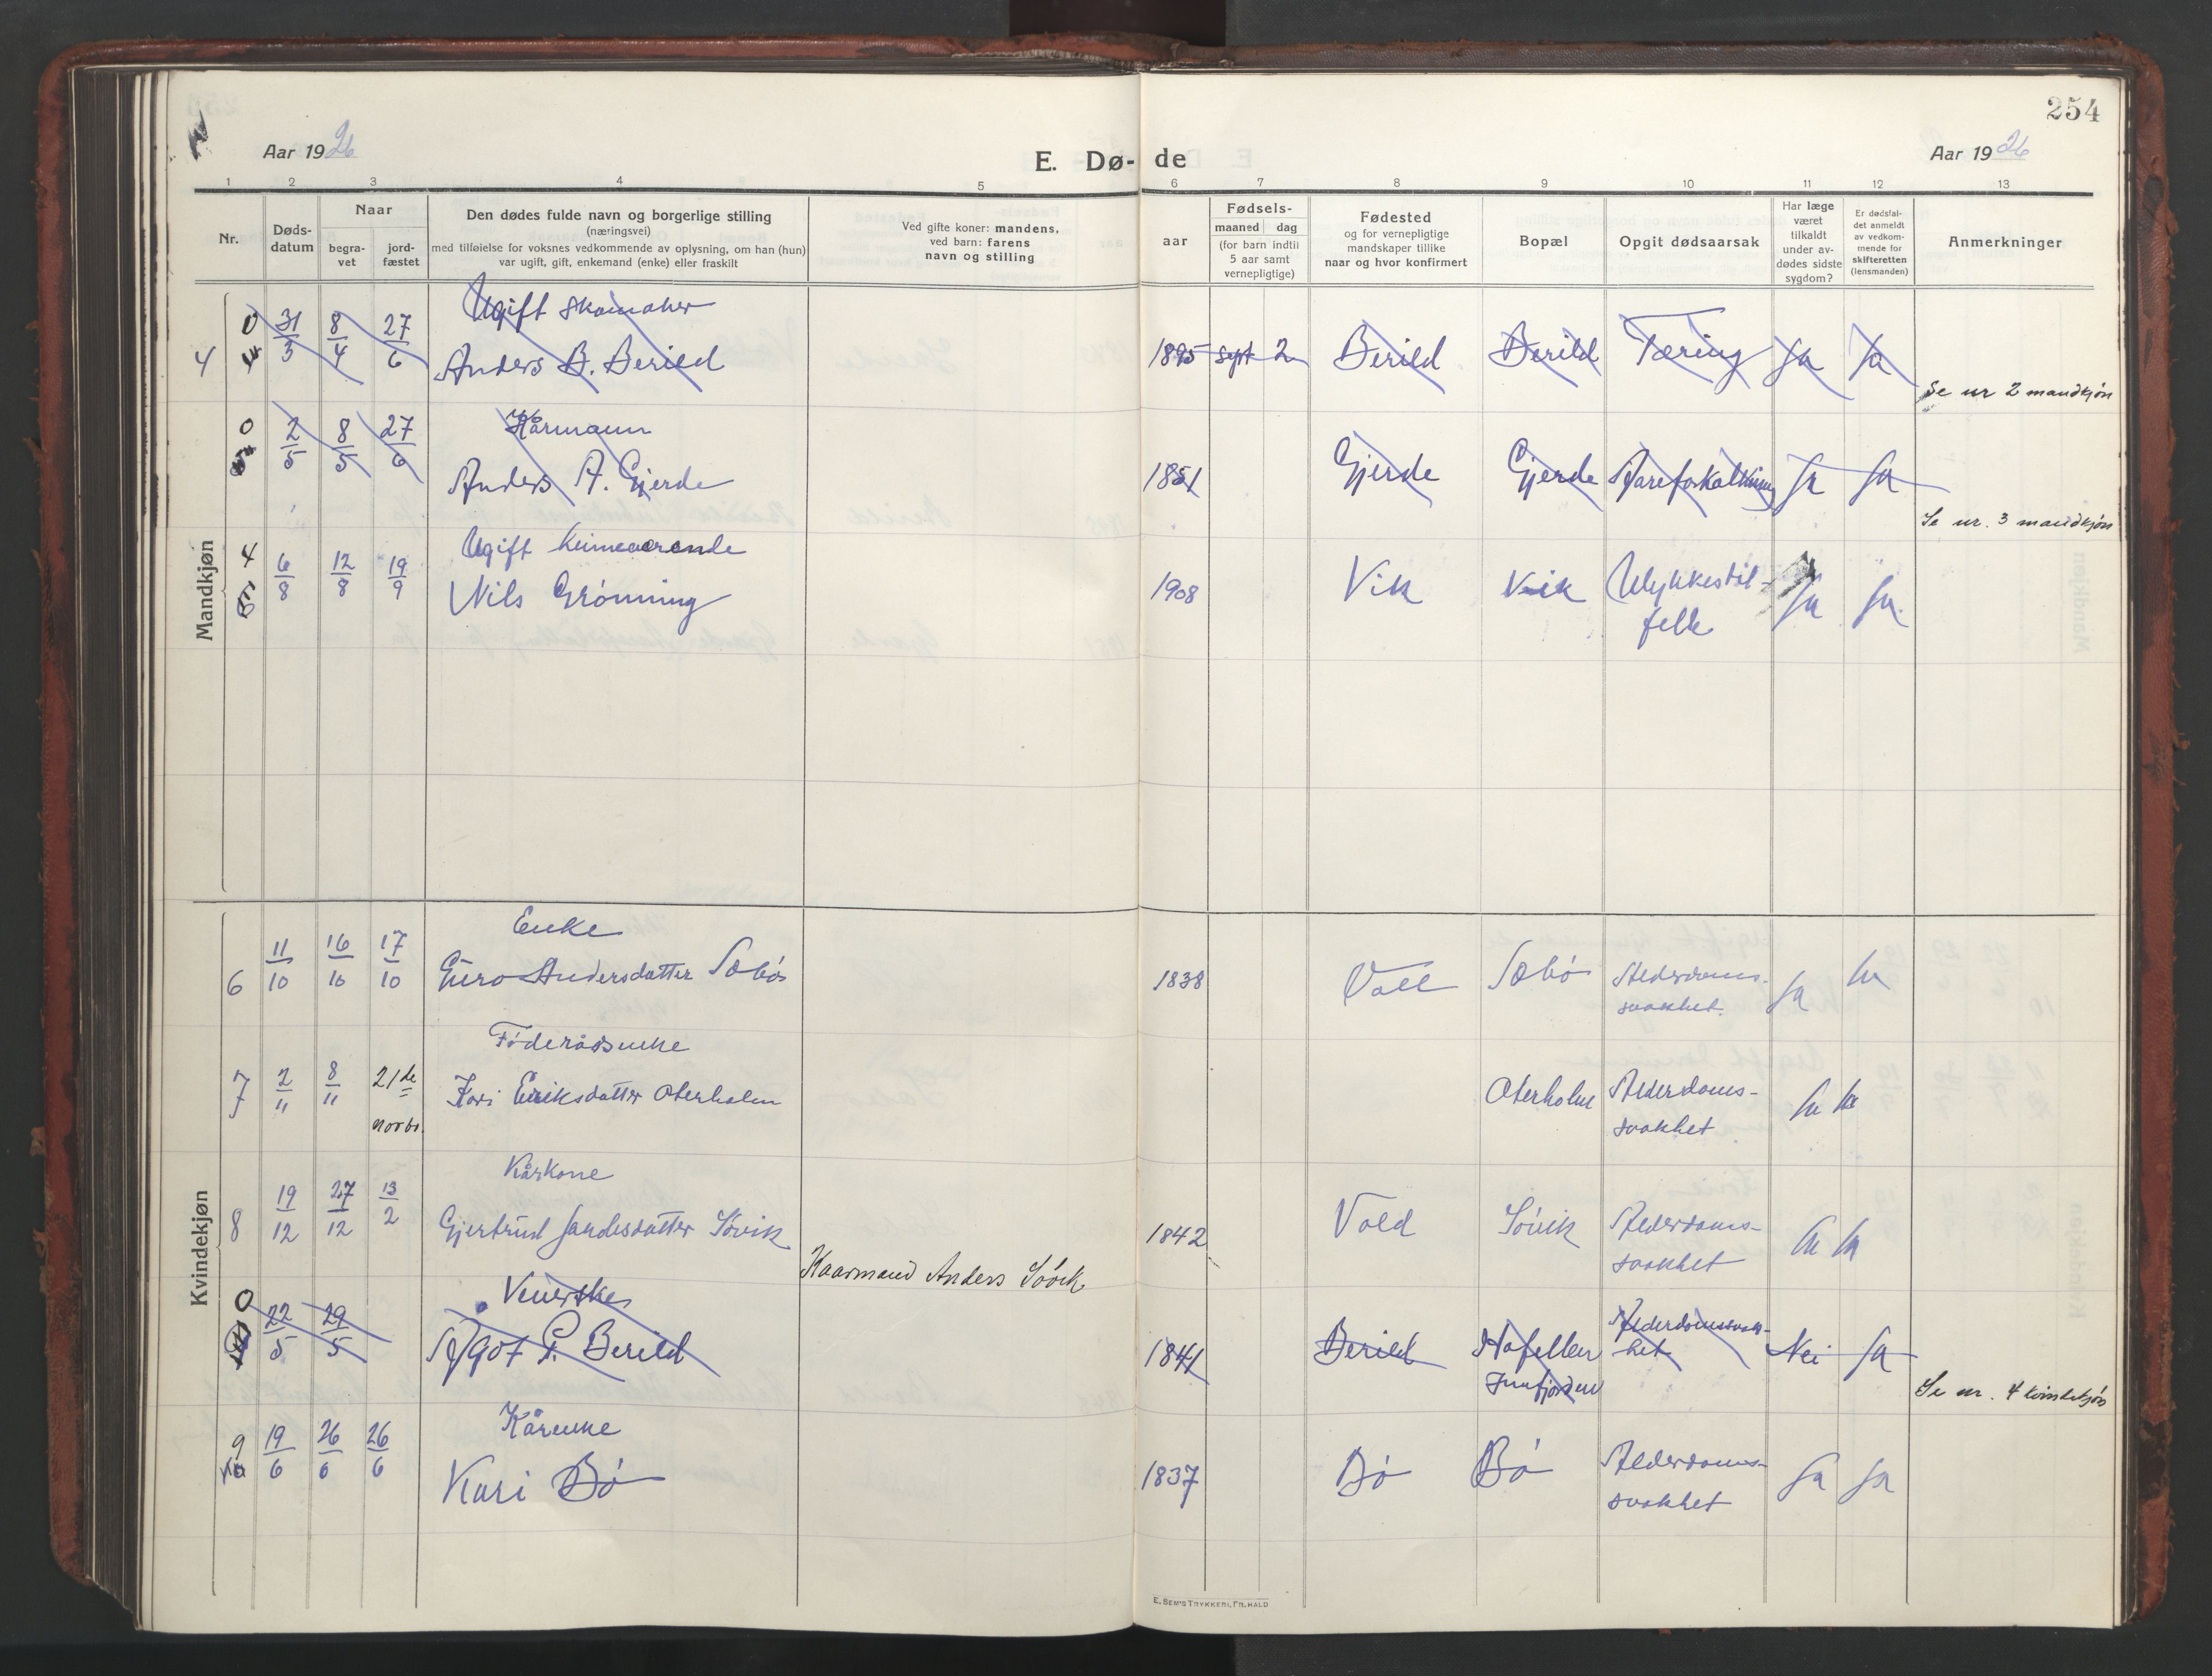 254
Aar 1926
E. Dø-de
Aar 1926
1 2 3 4 5 6 7 8 9 10 11 12 13
Nr.
Døds-
datum
Naar
begra-
vet
jord-
fæstet
Den dødes fulde navn og borgerlige stilling
(næringsvei)
med tilføielse for voksnes vedkommende av oplysning, om han (hun)
var ugift, gift, enkemand (enke) eller fraskilt
Ved gifte koner: mandens,
ved barn: farens
navn og stilling
aar
Fødsels-
maaned dag
(for barn indtil
5 aar samt
vernepligtige)
Fødested
og for vernepligtige
mandskaper tillike
naar og hvor konfirmert
Bopæl
Opgit dødsaarsak
Har læge
været
tilkaldt
under av-
dødes sidste
sygdom?
Er dødsfal-
det anmeldt
av vedkom-
mende for
skifteretten
(lensmanden)
Anmerkninger
Mandkjøn
Ugift skomaker
4 0 4 31/3 8/4 27/6 Anders B. Berild 1895 sept 2 Berild Berild Tæring Ja Ja
Se nr 2 mandkjøn
Kårmann
0 5 2/5 8/5 27/6 Anders A. Gjerde 1851 Gjerde Gjerde Åreforkalkning Ja Ja
Se nr. 3 mandkjøn
Ugift heimeværende
4 6/8 12/8 19/9 Nils Grønning 1908 Vik Vik Ulykkestil-
felle Ja Ja
Kvindekjøn
Enke
6 11/10 16/10 17/10 Guro Andersdatter Sæbø 1838 Voll Sæbø Alderdoms-
svakhet Ja Ja
Føderådsenke
7 2/11 8/11 21de
novbr. Kari Eriksdatter Oterholm Oterholm Alderdoms-
svakhet Ja Ja
Kårkone
8 19/12 27/12 13/2 Gjertrud Jandesdatter Søvik 1842 Vold Søvik Alderdoms-
svakhet Ja Ja
Kaarmand Anders Søvik
0 22/5 29/5 P. Berild 1841 Berild Innfjorden Alderdomssvak-
het Nei Ja
Se nr. 4 kvindekjøn
Kårenke
9 10 19/6 26/6 26/6 Kari Bø 1837 Bø Bø Alderdoms-
svakhet Ja Ja
E. SEM'S TRYKKERI, FR.HALD